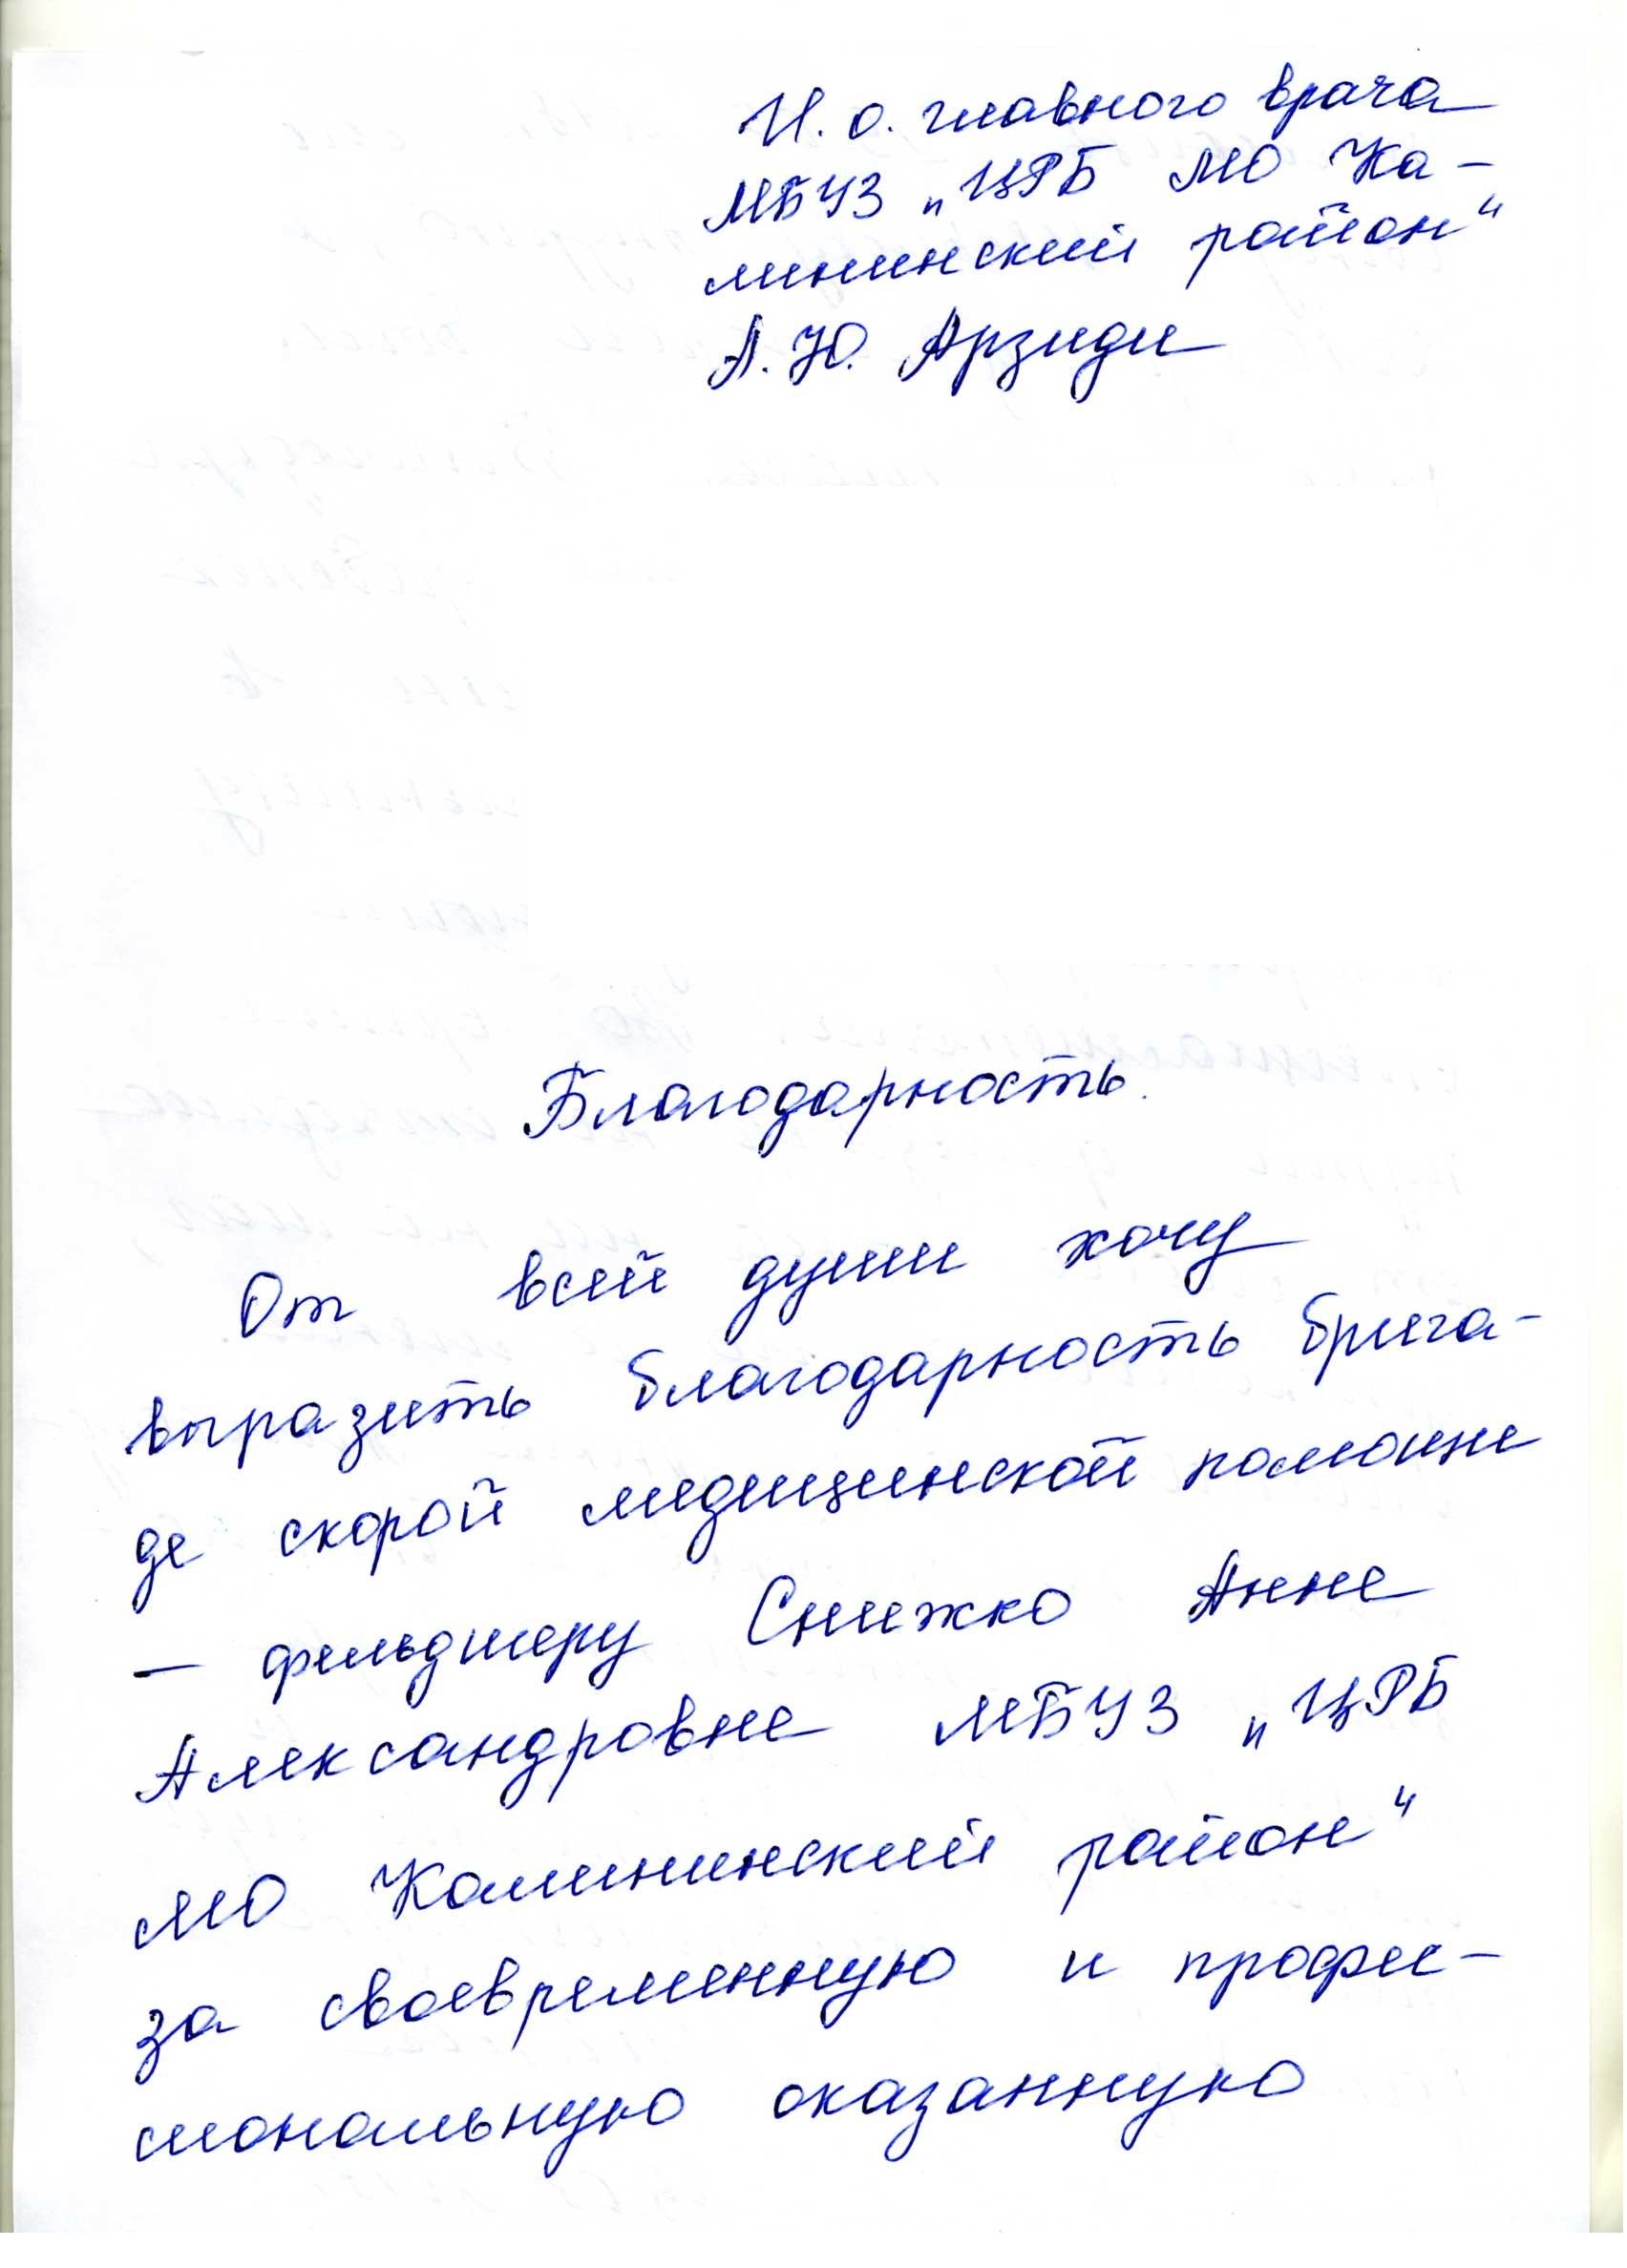 И. о. главного врача
МБУЗ „ЦРБ МО Ка-
лининский район“
А. Ю. Арзиди
Благодарность.
От всей души хочу
выразить благодарность брига-
де скорой медицинской помощи
— фельдшеру Снижко Анне
Александровне МБУЗ „ЦРБ
МО Калининский район“
за своевременную и профес-
сиональную оказанную